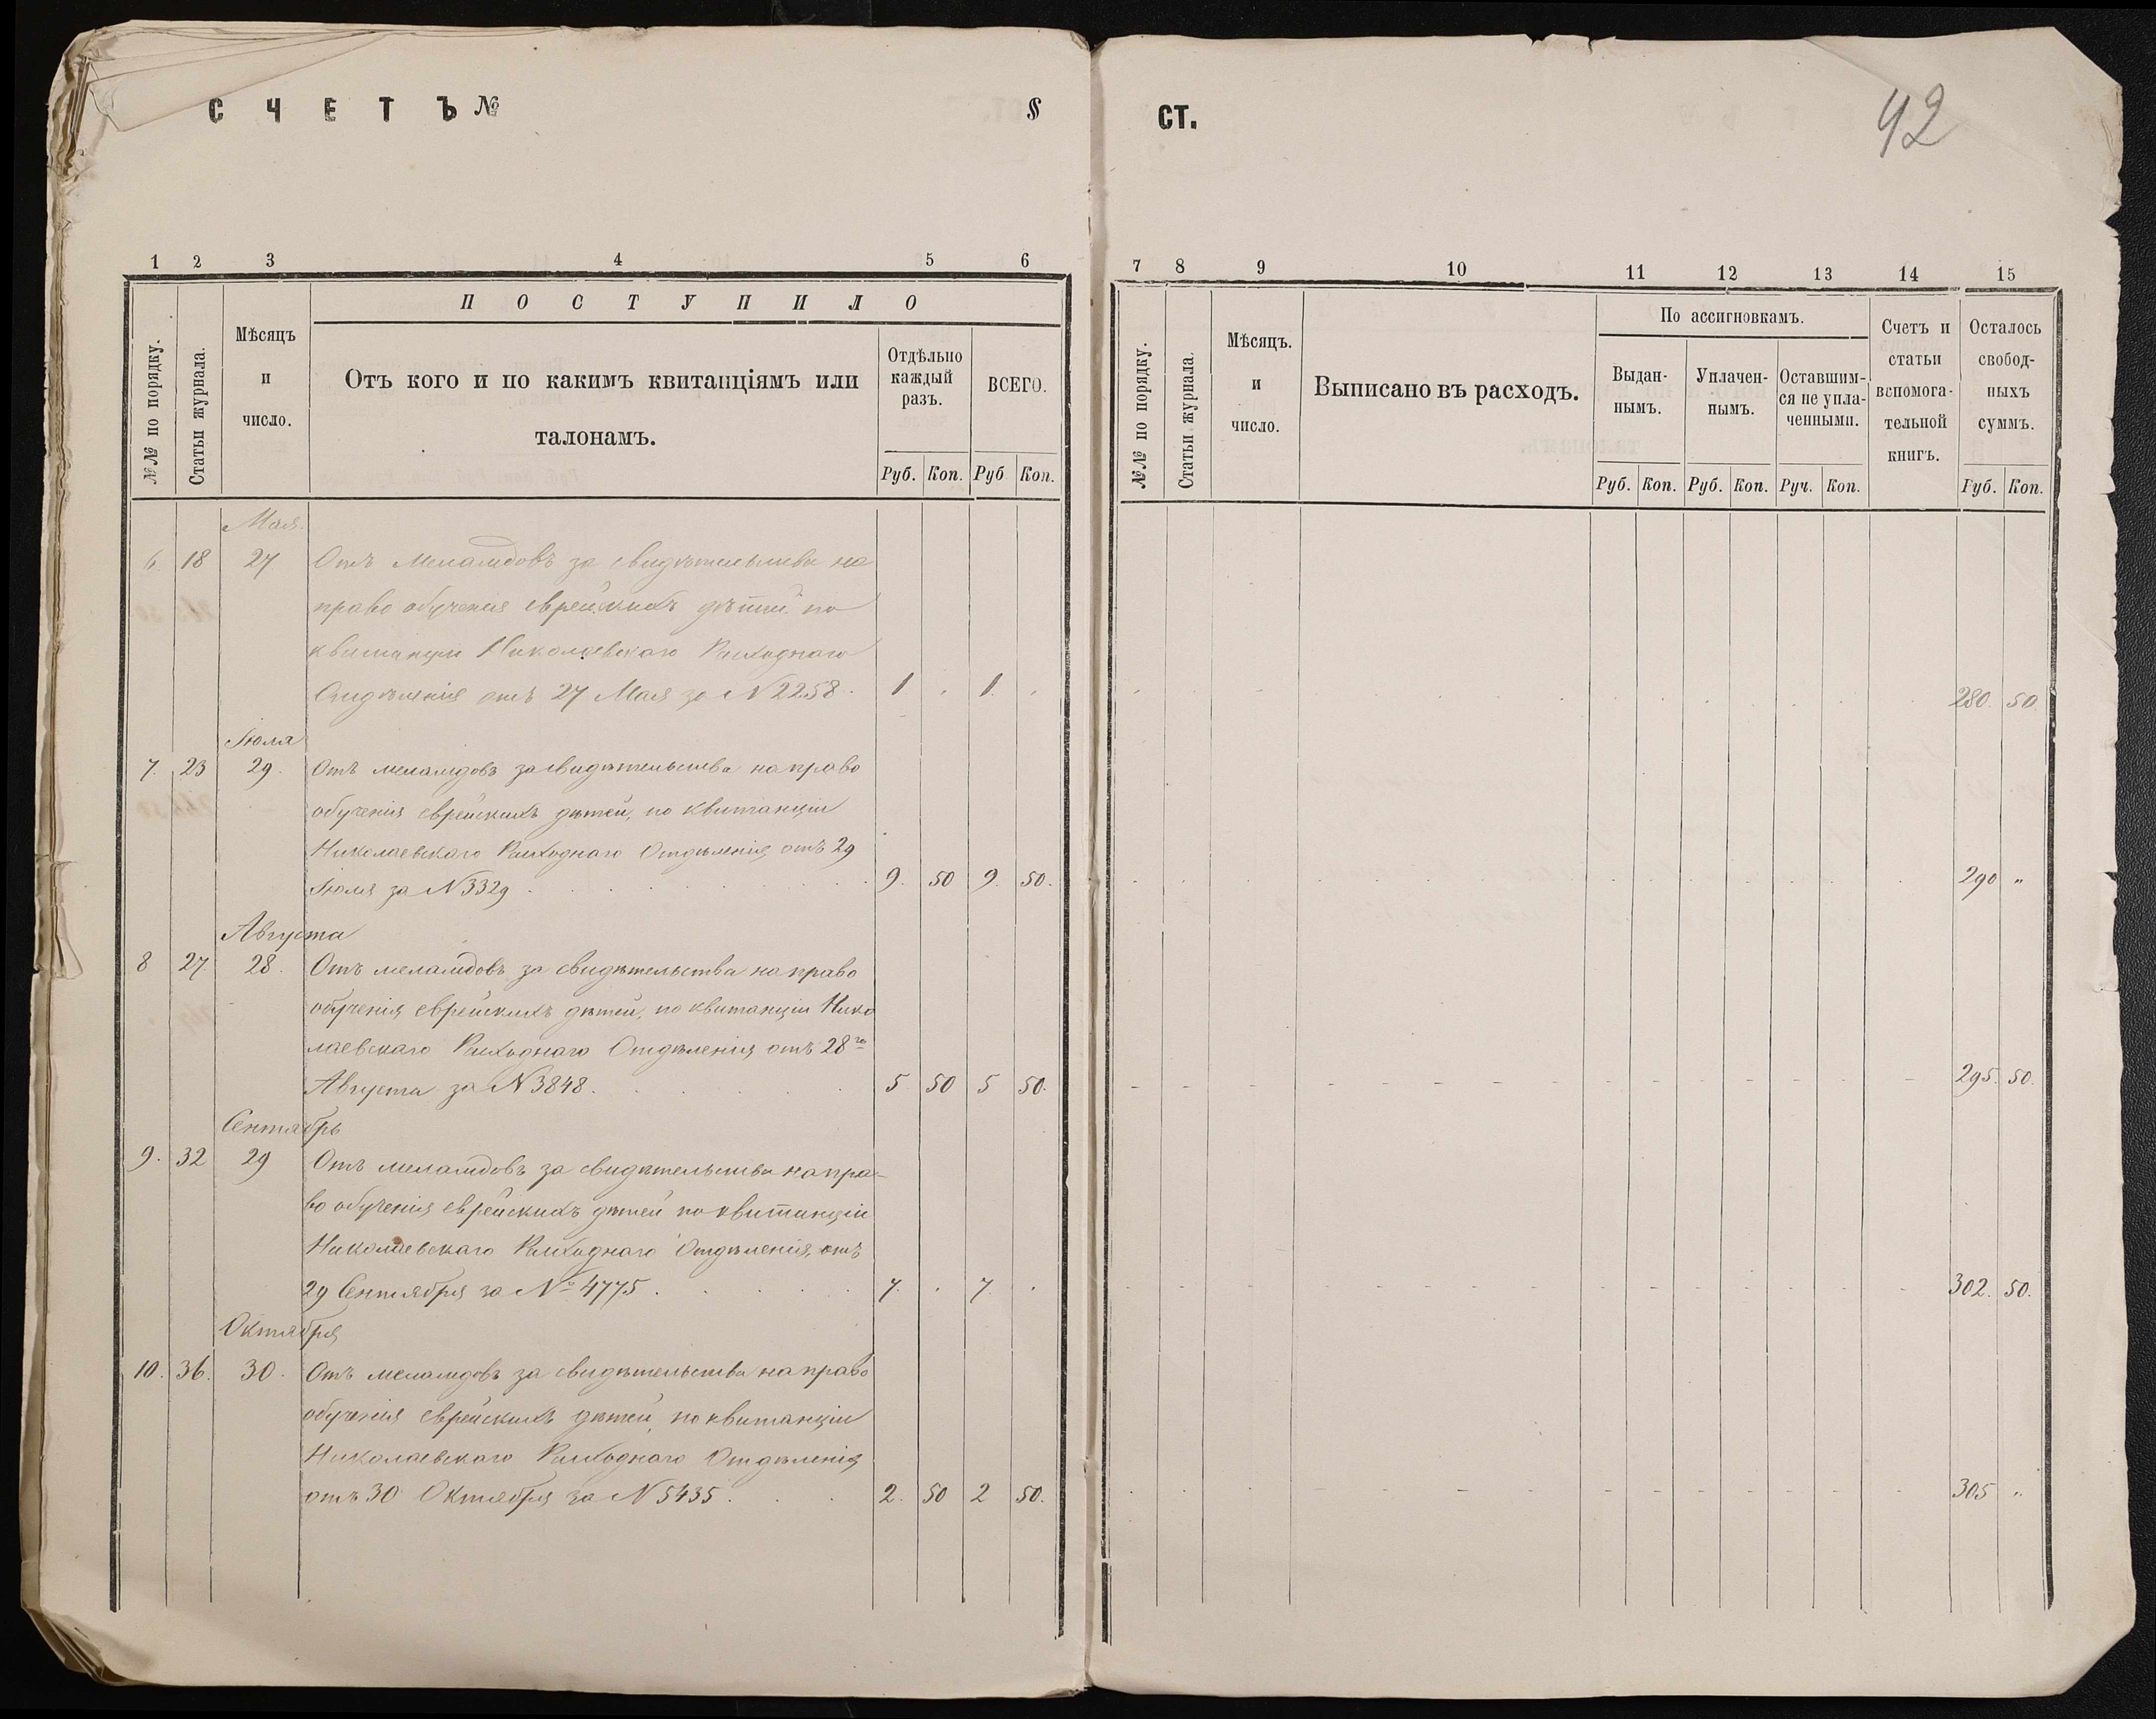 СЧЕТЪ № §
1 2 3 4 5 6
№№ по порядку.
Статьи журнала.
Мѣсяцъ
и
число.
ПОСТУПИЛО
Отъ кого и по какимъ квитанціямъ или
талонамъ.
Отдѣльно
каждый
разъ.
ВСЕГО.
Руб. Коп. Руб Коп.
Мая
6 18 27 Отъ Меламдовъ за свидѣтельства на
право обученія еврейскихъ дѣтей по
квитанціи Николаевскаго Расходнаго
Отдѣленія отъ 27 Мая за N 2258. 1 . 1 .
Іюля
7. 23 29. Отъ меламдовъ за свидѣтельства на право
обученія еврейскихъ дѣтей, по квитанціи
Николаевскаго Расходнаго Отдѣленія отъ 29
Іюля за N 3329 . 9. 50 9. 50.
Августа
8 27 28. Отъ меламдовъ за свидѣтельства на право
обученія еврейскихъ дѣтей, по квитанціи Нико
лаевскаго Расходнаго Отдѣленія отъ 28го
Августа за N 3848. 5 50 5 50.
Сентябрь
9. 32 29 Отъ меламдовъ за свидѣтельства на пра-
во обученія еврейскихъ дѣтей по квитанціи
Николаевскаго Расходнаго Отдѣленія, отъ
29 Сентября за № 4775 . 7. . 7 .
Октября
10. 36. 30. Отъ меламдовъ за свидѣтельства на право
обученія еврейскихъ дѣтей, по квитанціи
Николаевскаго Расходнаго Отдѣленія
отъ 30 Октября за N 5435 . 2. 50 2 50.
СТ.
42
7 8 9 10 11 12 13 14 15
№№ по порядку.
Статьи журнала.
Мѣсяцъ.
и
число.
Выписано въ расходъ.
По ассигновкамъ.
Выдан-
нымъ.
Уплачен-
нымъ.
Оставшим-
ся не упла-
ченными.
Счетъ и
статьи
вспомога-
тельной
книгъ.
Осталось
свобод-
ныхъ
суммъ.
Руб. Коп. Руб. Коп. Руч. Коп. Руб. Коп.
280. 50
290 "
295. 50.
302. 50.
305 "